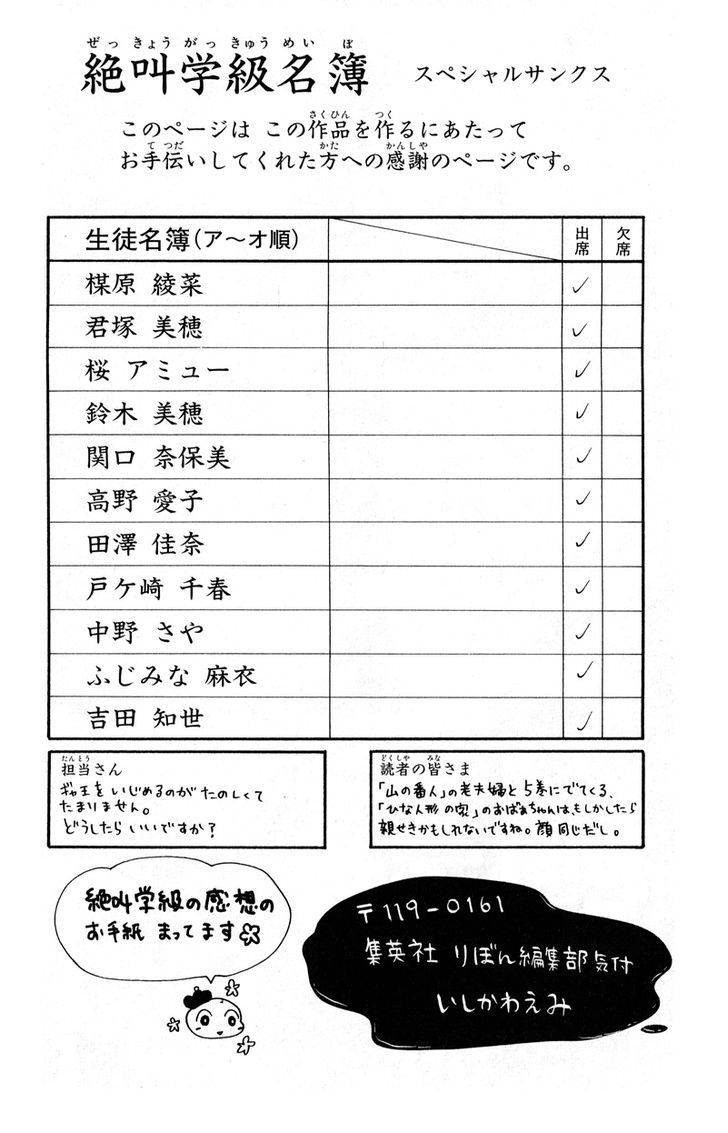 ぜっ きょう がっ きゅう めい ぼ
絶叫学級名簿 スペシャルサンクス
さくひん つく
このページは この作品を作るにあたって
て つだ かた かんしゃ
お手伝いしてくれた方への感謝のページです。
生徒名簿(ア〜オ順) 出席 欠席
楳原 綾菜 ✓
君塚 美穂 ✓
桜 アミュー ✓
鈴木 美穂 ✓
関口 奈保美 ✓
高野 愛子 ✓
田澤 佳奈 ✓
戸ケ崎 千春 ✓
中野 さや ✓
ふじみな 麻衣 ✓
吉田 知世 ✓
たんとう
担当さん
をいじめるのが たのしくて
たまりません。
どうしたら いいですか?
どくしゃ みな
読者の皆さま
「山の番人」の老夫婦と 5巻にでてくる、
「ひな人形 の家」のおばあちゃんは、もしかしたら
親せきかもしれないですね。顔同じだし。
絶叫学級の感想の
お手紙 まってます
〒119-0161
集英社 りぼん編集部気付
いしかわえみ